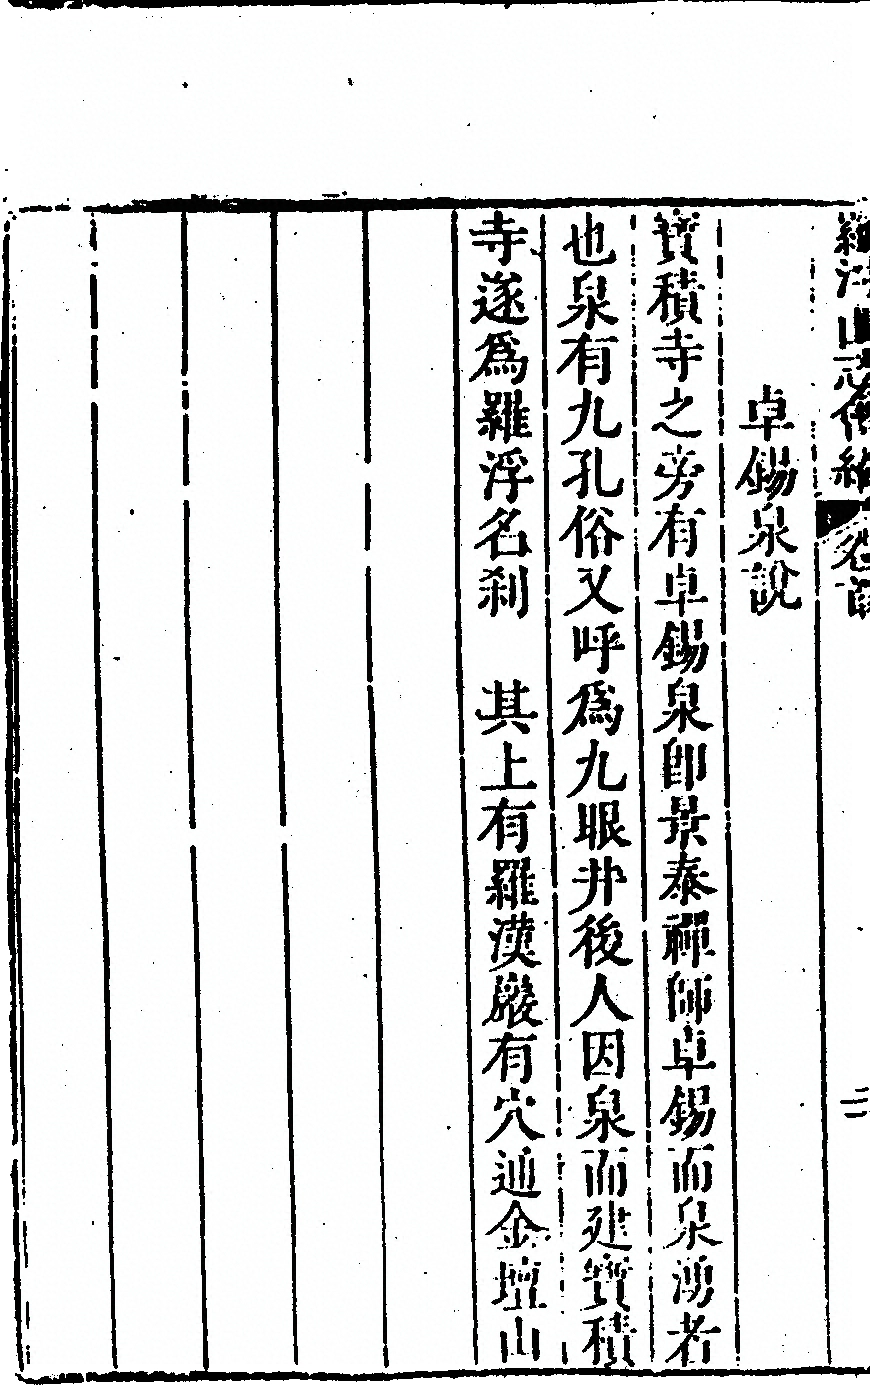 羅浮山志會編
卓錫泉說
寶積寺之旁有卓錫泉卽景泰禪師卓錫而泉湧者
也泉有九孔俗又呼爲九眼井後人因泉而建寶積
寺遂爲羅浮名刹　其上有羅漢巖有穴通金壇山